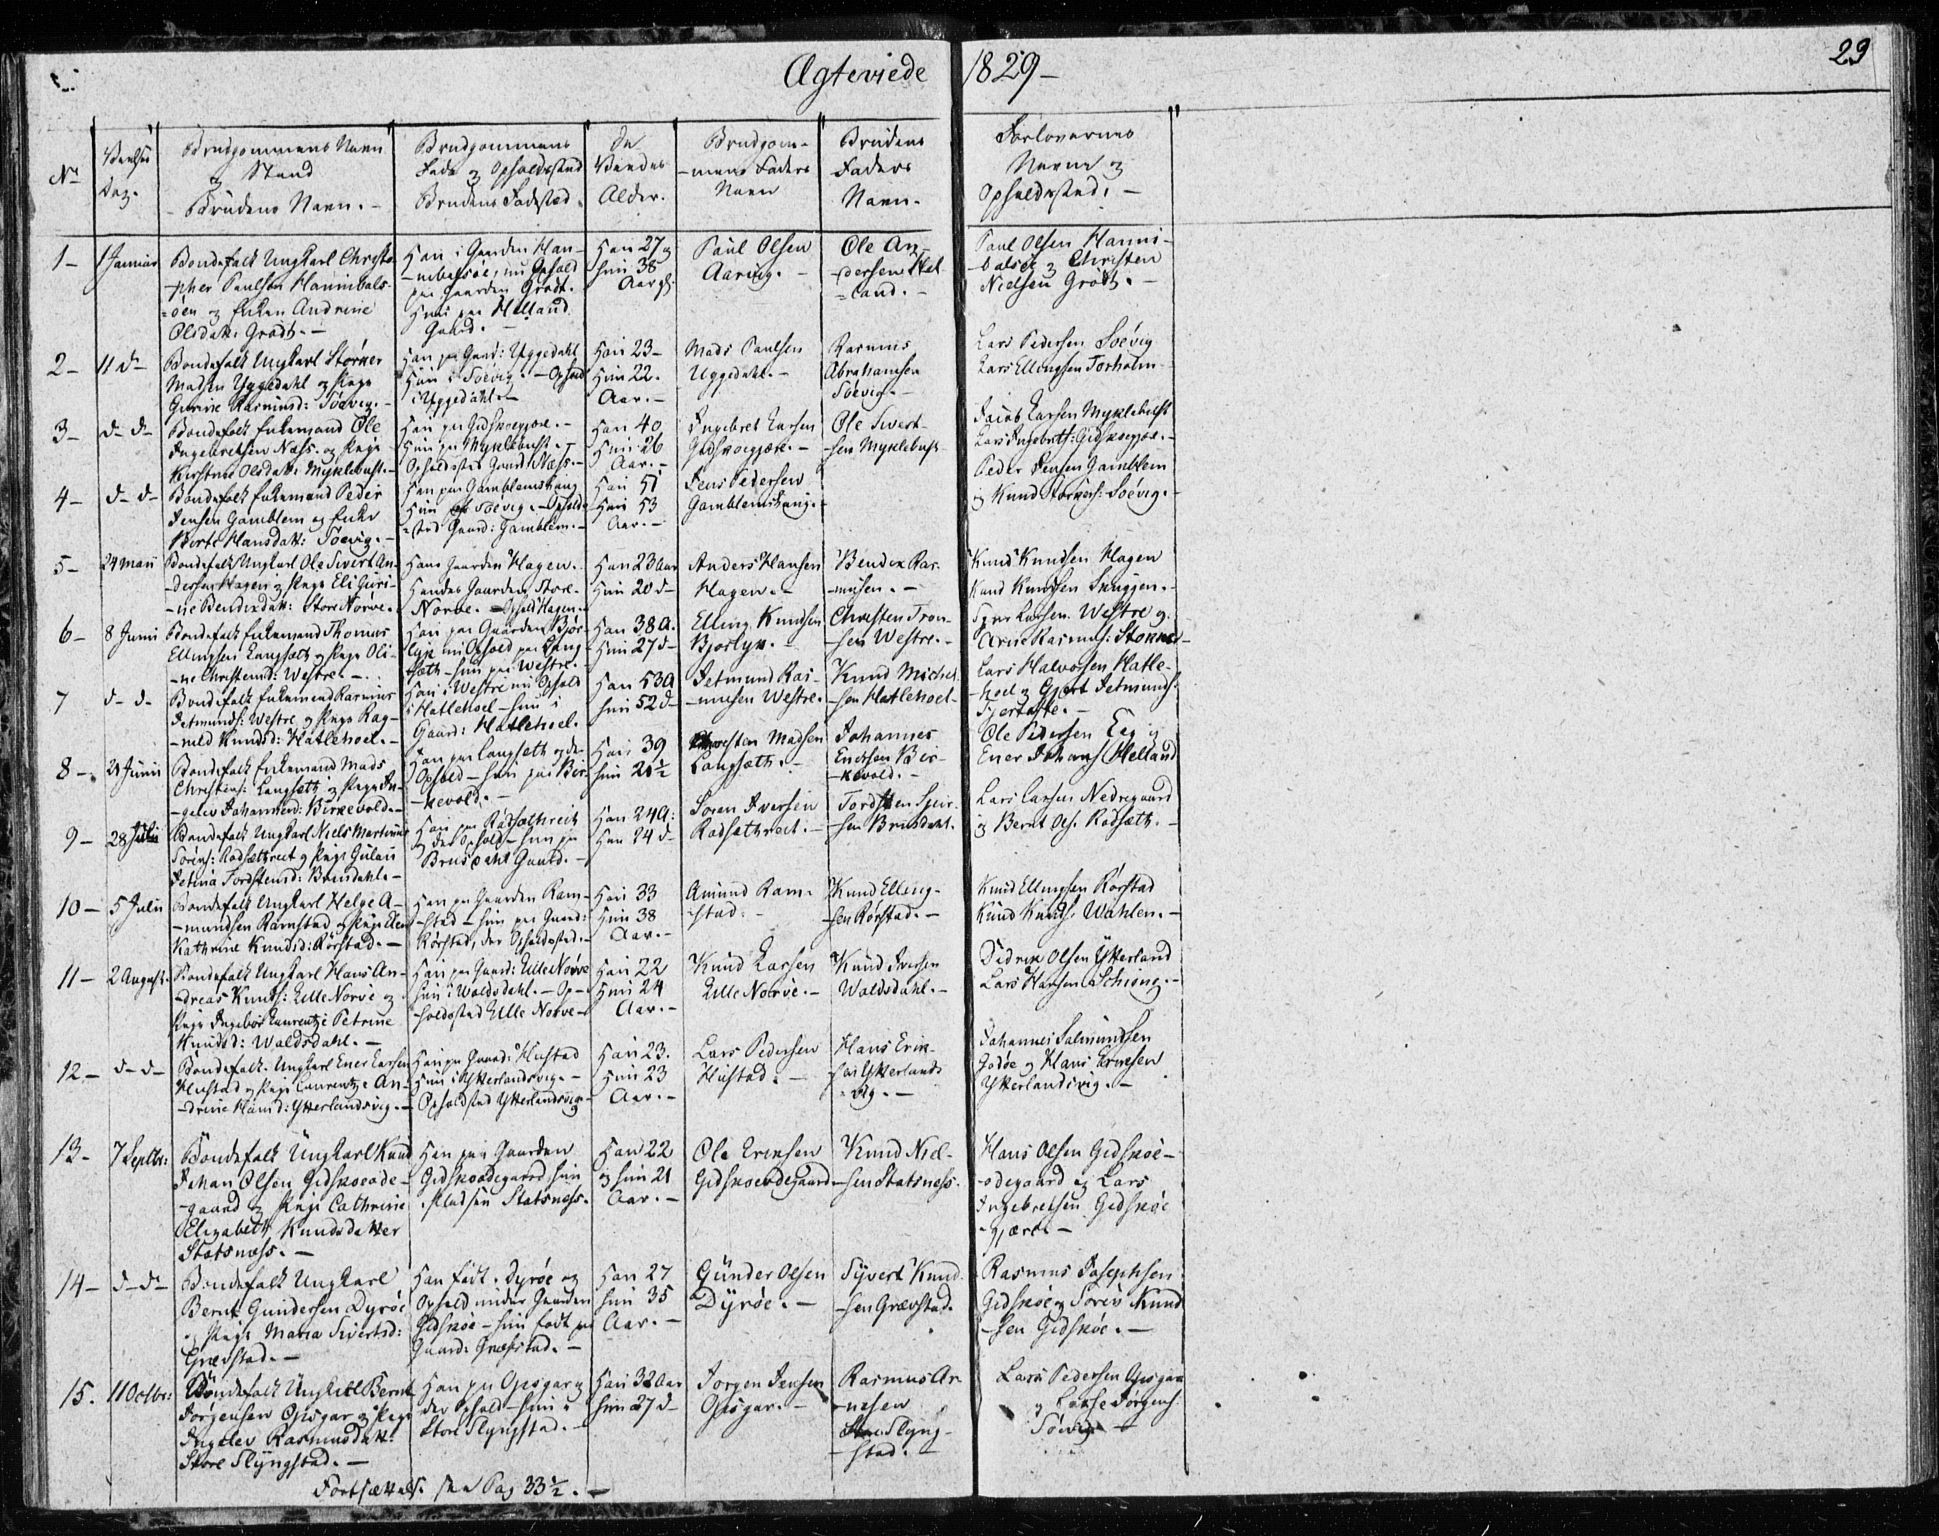 Ægteviede 1829 -
29
No
Vielses
Dag.
Brudgommens Navn
og Stand
Brudens Navn. -
Brudgommens
Føde og Opholdssted
Brudens Fødested.
De
Viedes
Alder.
Brudgom-
-mens Faders
Navn
Brudens
Faders
Navn.
Forlovernes
Navne og
Opholdssted. -
1 -
1 Januar
Bondefolk Ungkarl Christo-
-pher Paulsen Hannibals-
-öen og Enken Andrine
Olsdatt: Grödt. -
Han i Gaarden Han-
-nibalsöe, nu Ophold
paa Gaarden Grödt.
Hun paa Helland
Gaard. -
Han 27 og
hun 38
Aar gl.
Paul Olsen
Aaring. -
Ole An-
-dersen
-land. -
Paul Olsen Hanni-
-balsöe og Christen
Nielsen Grödt. -
2 -
11 d -
Bondefolk Ungkarl Størker
Madsen Yggedahl og Pige
Gurine Rasmusd: Søevig. -
Han paa Gaard: Uggedahl
Hun i Søevig. - Ophold
i Uggedahl. -
Han 23 -
Hun 22.
Aar. -
Mads Paulsen
Uggedahl. -
Rasmus
Abrahamsen
Søevig. -
Lars Pedersen Soévig
Lars Ellingsen Torholm
3 -
d - d -
Bondefolk Enkemand Ole
Ingebretsen Næss. og Pige
Kirstine Olsdatt: Myklebust. -
Han paa Gidskoegjære. -
Hun paa Myklebust. -
Opholdssted Gaard: Næss. -
Han 40
Hun 26
Aar. -
Ingebret Larsen
Gidskoegjære. -
Ole Sivert-
-sen Myklebust
Jacob Larsen Myklebust
Lars Ingebrets: Gidskoegjæe. -
4 -
d - d -
Bondefolk Enkemand Peder
Jensen Gamblem og Enke
Berte Hansdatt: Søevig. -
Han paa Gamblemshaug
Hun paa Soévig. - Ophold-
-sted Gaard: Gamblem. -
Han 51
Hun 53
Aar. -
Jens Pedersen
Gamblemshaug. -
Peder Jensen Gamblem
og Knud Størkers: Soévig. -
5 -
24 Maii
Bondefolk Ungkarl Ole Sivert An-
-dersen Hagen og Pige Eli Guri-
-ne Bendixdatt: Store Nörve. -
Hans Gaarden Hagen.
Hendes Gaarden Store-
Nørve. - Ophold Hagen. -
Han 23 Aar
Hun 20 d -
Anders Hansen
Hagen. -
Bendix Ras-
-musen. -
Knud Knudsen Hagen
Knud Knudsen Snuggen. -
6 -
8 Junii
Bondefolk Enkemand Thomas
Ellingsen Langsæth og Pige Oli-
-ne Christensd: Westre. -
Han paa Gaarden Björ-
-lyk nu Ophold paa Lang-
-sæth - hun paa Westre. -
Han 38 A.
Hun 27 d -
Elling Knudsen
Bjorlyk. -
Christen Tron-
-sen Westre. -
Larsen Westre og
Arne Rasmus: Stokke -
7
d - d -
Bondefolk Enkemand Rasmus
Jetmunds: Westre og Pige Rag-
-nild Knudsd: Hatlehoel. -
Han i Westre nu Ophold
i Hatlehoel - hun i
Gaard: Hatlehoel.
Han 53 A
hun 52 d -
Jetmund Ras-
-musen Westre. -
Knud Michel-
-sen Hatlehoel -
Lars Halvorsen Hatle-
-hoel og Gjert Jetmunds:
Fjertofte. -
8 -
21 Junii
Bondefolk Enkemand Mads
Christens: Langsæth og Pige In-
-gelev Johannesd: Birkevold. -
Han paa Langsæth og der
Ophold - hun paa Bir-
-kevold. -
Han 39
hun 21½
Christen Madsen
Langsæth. -
Johannes
Ericksen Bir-
-kevold. -
Ole Pedersen Eeg og
Ener Johans Helland
9 -
28 Julii
Bondefolk Ungkarl Niels Martinus
Sörens: Rødsættreit og Pige Gulau
Jetina Tordstensd: Brusdahl. -
Han paa Rødsæthreit
og der Ophold - hun paa
Brusdahl Gaard. -
Han 24 A:
Hun 24 d
Soren Iversen
Rødsæthreit. -
Tordsten Siver-
-sen Brusdahl.
Lars Larsen Nedregaard
og Bernt Ols. Rodsæth. -
10 -
5 Julii
Bondefolk Ungkarl Helge A-
-mundsen Ramstad og Pige Elen
Kathrine Knudsd: Rørstad. -
Han paa Gaarden Ram-
-stad - hun paa Gaard:
Rørstad, der Opholdssted. -
Han 33
Hun 38
Aar. -
Amund Ram-
-stad. -
Knud Elling-
-sen Rørstad. -
Knud Ellingsen Rørstad
Knud Knuds: Wahlen. -
11 -
2 August.
Bondefolk Ungkarl Hans An-
-dreas Knuds: Lille Norve og
Pige Ingebor Laurentze Petrine
Knudsd: Waldsdahl. -
Han paa Gaard: Lille Nørve
hun i Waldsdahl. - Op-
-holdssted Lille Nørve -
Han 22
Hun 24
Aar. -
Knud Larsen
Lille Norve. -
Knud Iversen
Waldsdahl. -
Didrik Olsen Ytterland
Lars Hansen Schiong. -
12 -
d - d -
Bondefolk. Ungkarl Ener Larsen
Hustad og Pige Laurentze An-
-drine Hansd: Ytterlandsvig. -
Han paa Gaard: Hustad
Hun i Ytterlandsvig. -
Opholdssted Ytterlandsvig -
Han 23.
Hun 23
Aar. -
Lars Pedersen
Hustad. -
Hans Erik-
-sen Ytterlands
-vig. -
Johannes Salmundsen
Godøe og Hans Ericksen
Ytterlandsvig. -
13 -
7 Septbr:
Bondefolk Ungkarl Knud
Johan Olsen Gidskoeöde-
-gaard og Pige Cathrine
Elizabeth Knudsdatter
Statsnæss. -
Han paa Gaarden
Gidskoeödegaard hun
i Pladsen Statsness.
Han 22
og hun 21
Aar. -
Ole Ericksen
Gidskoeodegaard
Knud Niel-
-sen Statsness.
Hans Olsen Gidskøe-
-odegaard og Lars
Ingebretsen Gidskøe
-gjære -
14 -
d - d -
Bondefolk Ungkarl
Bernt Gundersen Dyröe
og Pige Maria Sivertsd:
Grævstad. -
Han født i Dyröe og
Ophold under Gaarden
Gidskøe - hun født paa
Gaard: Græfstad. -
Han 27
hun 35
Aar. -
Günder Olsen
Dyröe. -
Syvert Knud-
-sen Grævstad.
Rasmus Josephsen
Gidskoe og Sören Knud
-sen Gidskøe. -
15.
11 Octbr:
Bondefolk Ungkarl Bernt
Jörgensen Opsgar og Pige
Ingelev Rasmusdatt:
Store Slyngstad. -
Han paa Opsgar og
der Ophold - hun i
Store Slyngstad. -
Han 32 Aar
hun 27 d -
Jorgen Jensen
Opsgar. -
Rasmus Ar-
-nesen
Store Slyng-
-stad. -
Lars Pedersen Opsgar
og Lasse Jörgens:
Søvig -
Fortsættelse see Pag 33½. -